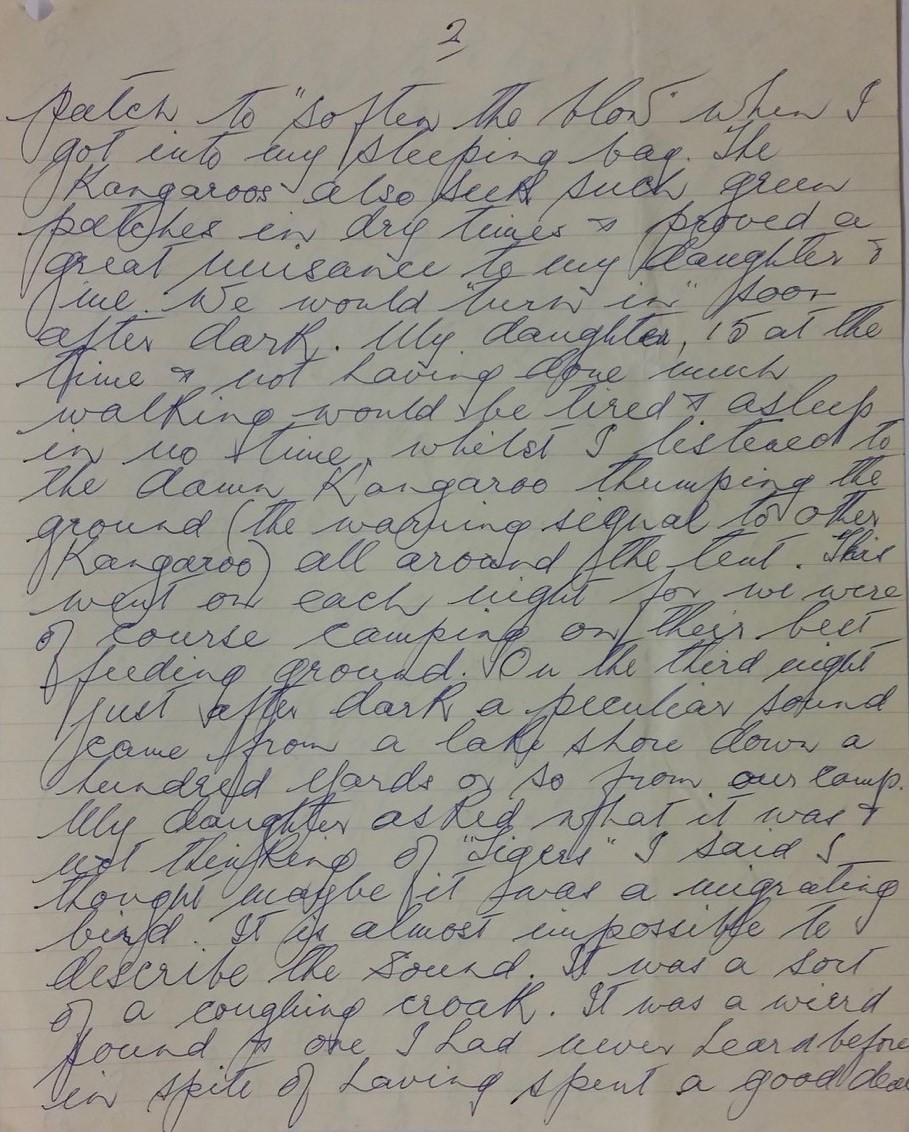 2
patch to "soften the blow" when I
got into my sleeping bag. The
Kangaroos also seek such green
patches in dry times & proved a
great nuisance to my daughter &
me. We would "turn in" soon
after dark. My daughter, 15 at the
time & not having done much
walking would be tired & asleep
in no time, whilst I listened to
the damn Kangaroo thumping the
ground (the warning signal to other
Kangaroo) all around the tent. This
went on each night for we were
of course camping on their best
feeding ground. On the third night
just after dark a peculiar sound
came from a lake shore down a
hundred yards or so from our camp.
My daughter asked what it was &
not thinking of "Tigers" I said I
thought maybe it was a migrating
bird. It is almost impossible to
describe the sound. It was a sort
of a coughing croak. It was a wierd
sound & one I had never heard before
in spite of having spent a good deal